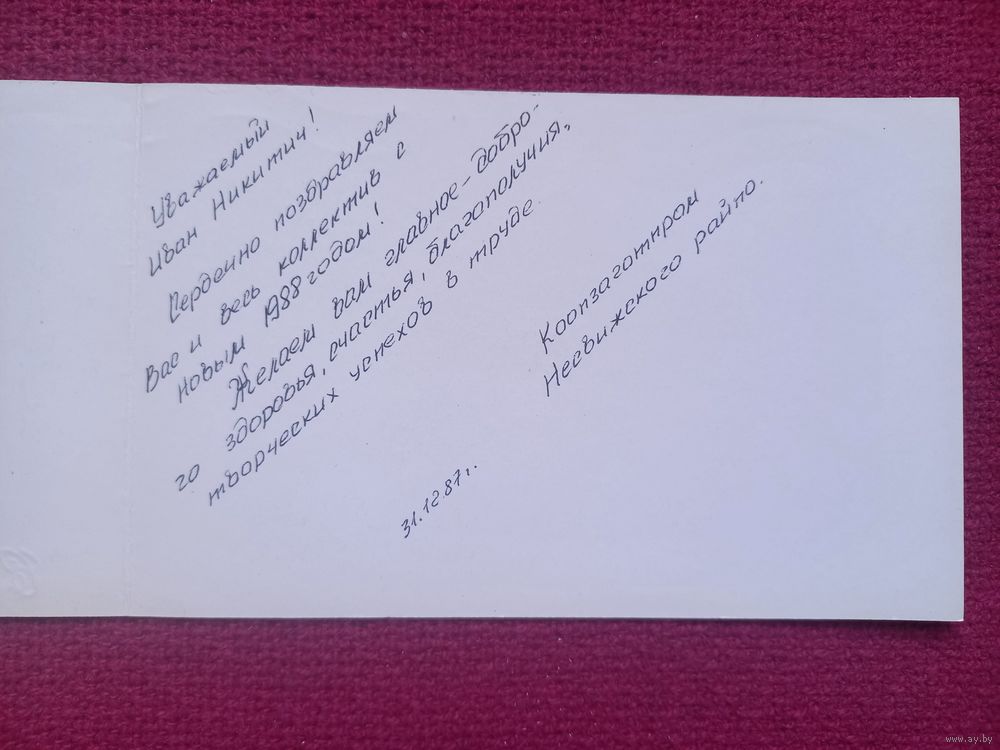 Уважаемый
Иван Никитич!
Сердечно поздравляем
Вас и весь коллектив с
новым 1988 годом!
Желаем вам главное - добро-
го здоровья, счастья, благополучия,
творческих успехов в труде.
Коопзаготпром
Несвижского райпо.
31.12.87 г.
www.ay.by